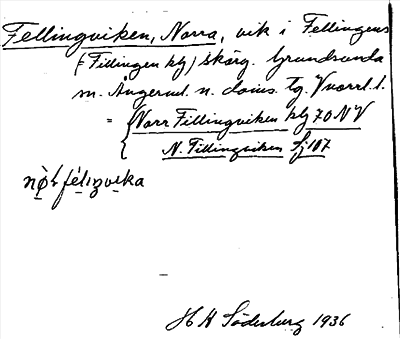 Fellingviken, Norra, vik i Fellingens
(= Fillingen kg) skärg. Grundsunda
sn. Ångerml. n. doms. tg. Vnorrl. l.
= Norr Fillingviken kg 70 NV
N. Fillingviken Sj 107
H H Söderberg 1936